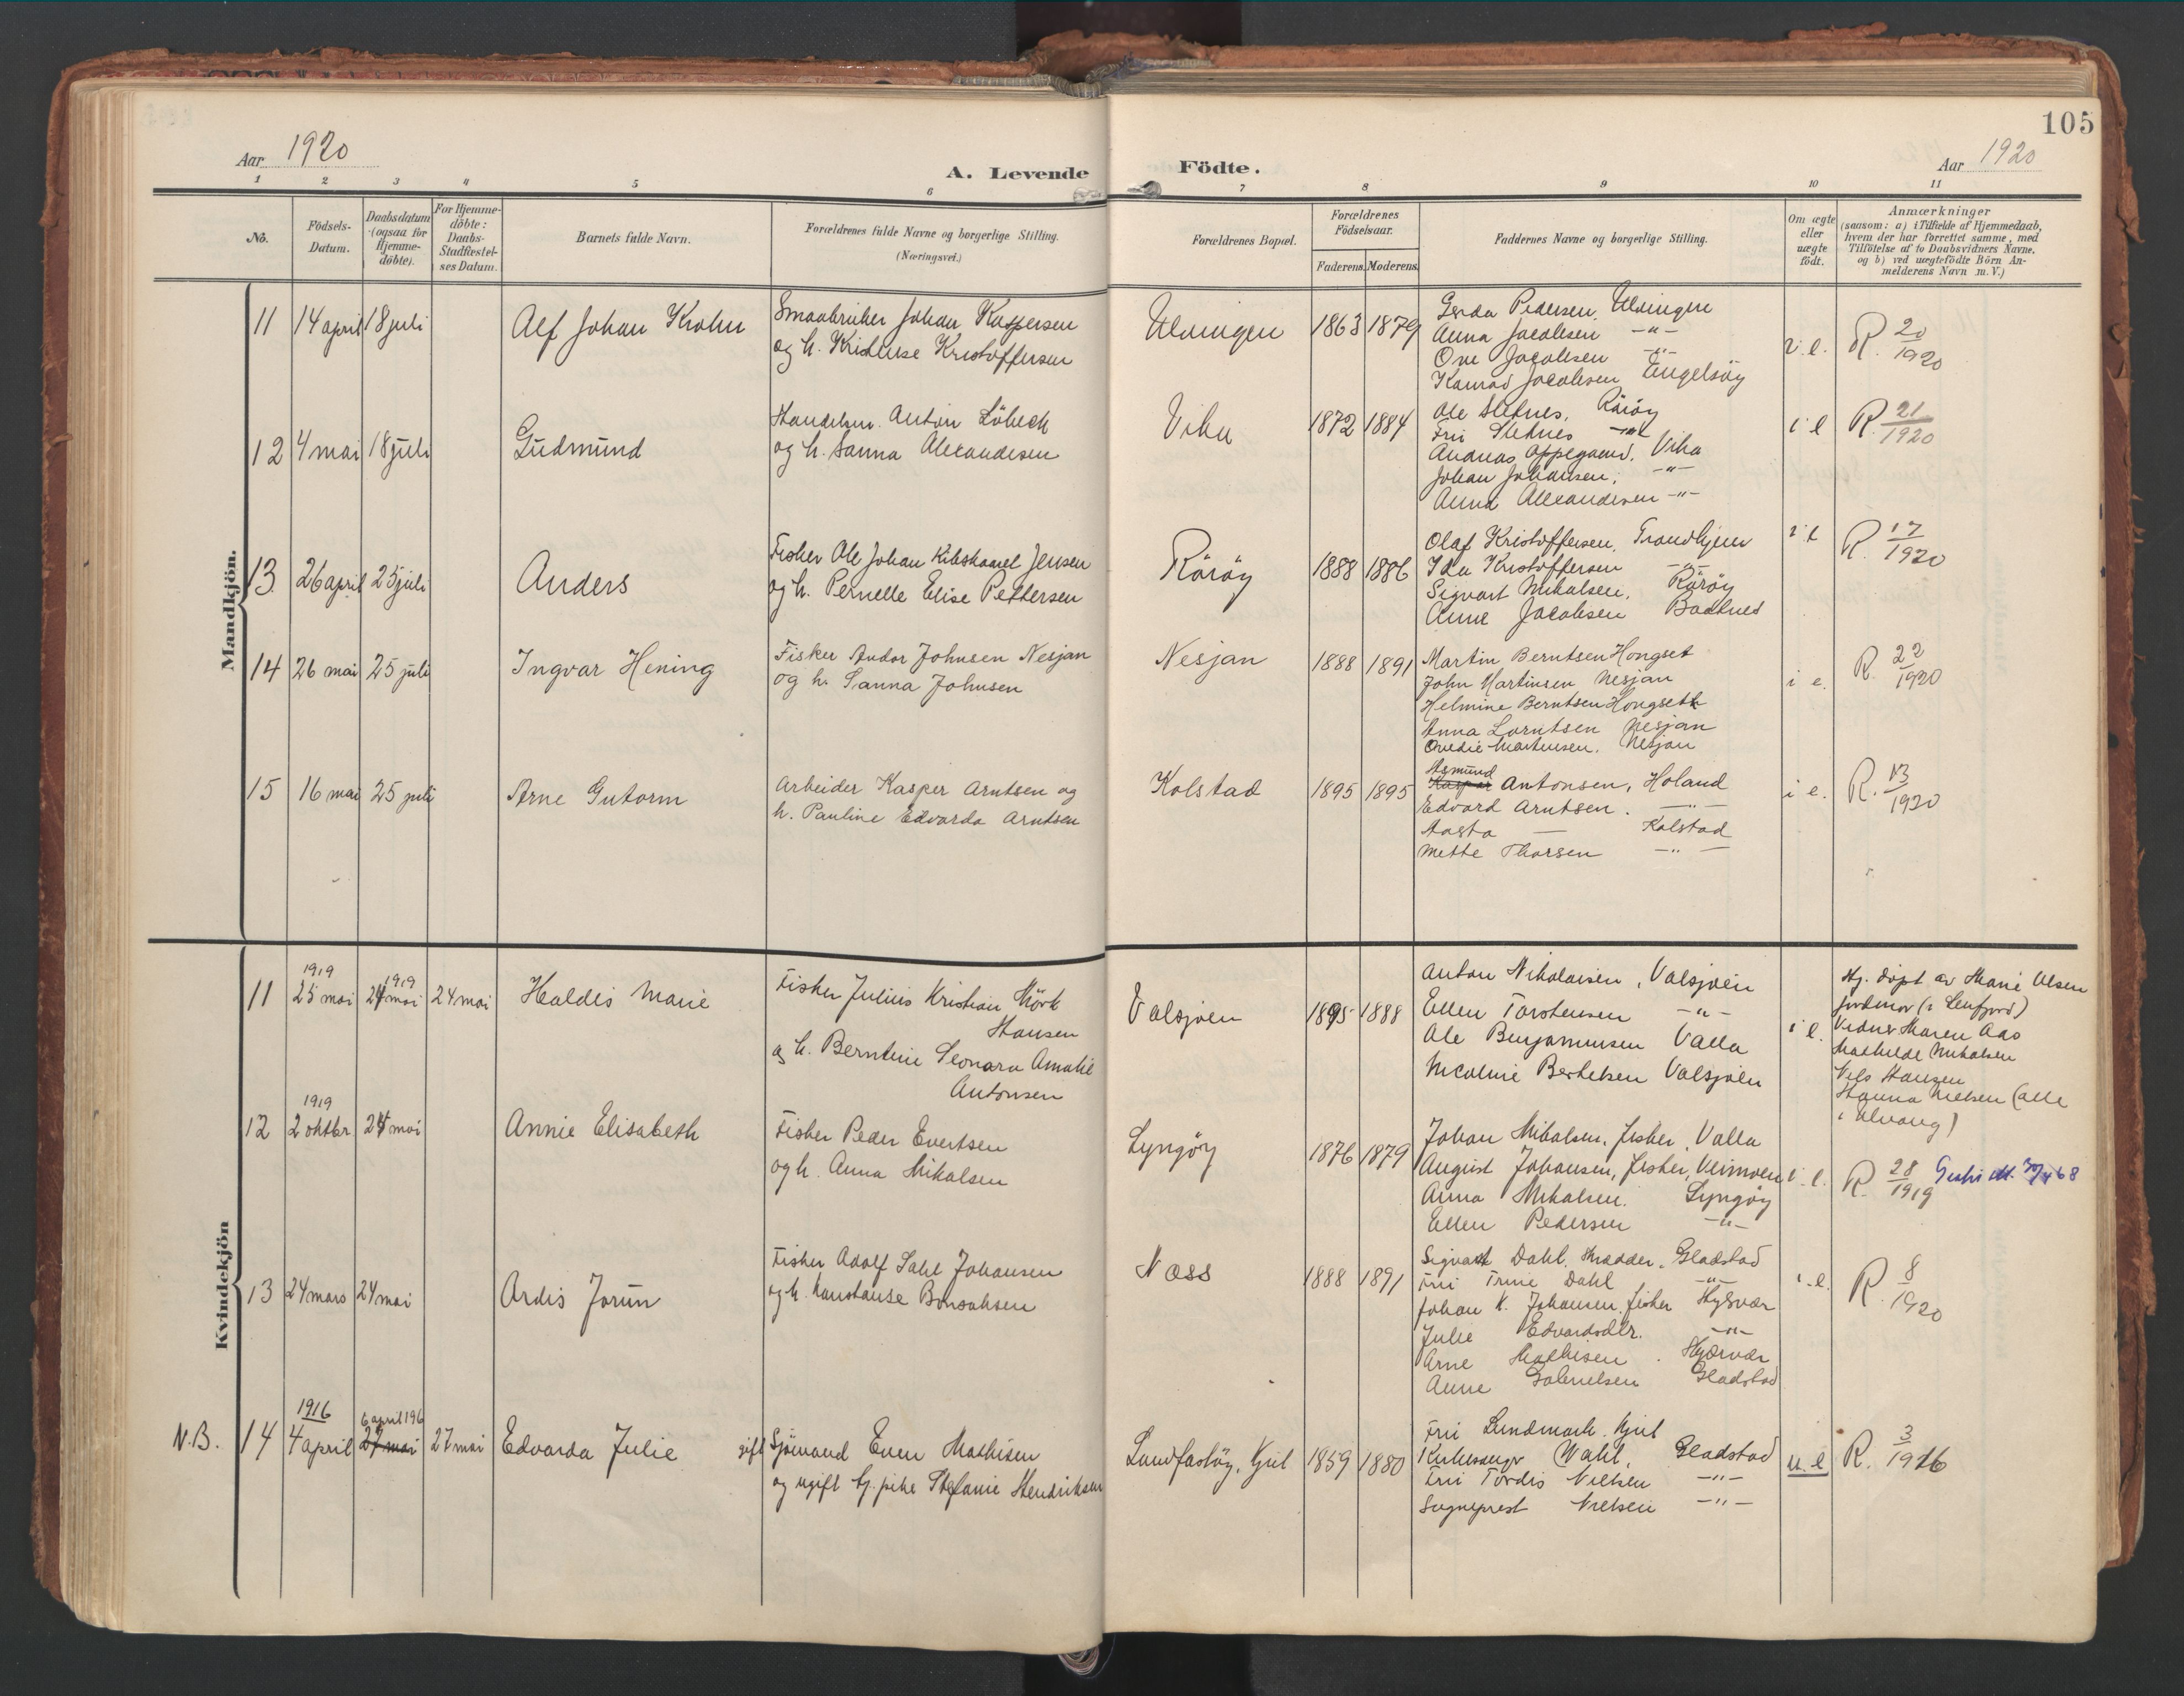 105
Aar 1920
A. Levende Födte.
Aar 1920
1 2 3 4 5 6 7 8 9 10 11
No.
Födsels-
Datum.
Daabsdatum
(ogsaa for
Hjemme-
döbte).
For Hjemme-
döbte:
Daabs-
Stadfæstel-
ses Datum.
Barnets fulde Navn.
Forældrenes fulde Navne og borgerlige Stilling.
(Næringsvei.)
Forældrenes Bopæl.
Forældrenes
Födselsaar.
Faderens. Moderens.
Faddernes Navne og borgerlige Stilling.
Om ægte
eller
uægte
født.
Anmærkninger
(saasom: a) i Tilfælde af Hjemmedaab,
hvem der har forrettet samme, med
Tilföielse af to Daabsvidners Navne,
og b) ved uægtefödte Börn An-
melderens Navn m. V.)
Mandkjön.
11 14 april 18 juli
Alf Johan Krohn
Smaabruker Johan Kaspersen
og h. Kristoffersen
Ulvingen
1863 1879
Gerda Pedersen, Ulvingen
Anna Jacobsen -"-
Ove Jacobsen -"-
Konrad Jacobsen Engelsöy
i.e.
R. 20/1920
12 4 mai 18 juli
Gudmund
Handelsm. Anton Löbeck
og h. Sanna Alexandersen
Vika
1872 1884
Ole Sletnes, Röröy
Fru Sletnes -"-
Andreas Oppegaard, Vika
Johan Johansen, -"-
Anna Alexandersen -"-
i e
R. 21/1920
13 26 april 25 juli
Anders
Fisker Ole Johan Jensen
og h. Pernelle Elise Pettersen
Röröy
1888 1886
Olaf Kristoffersen, Trondhjem
Ida Kristoffersen -"-
Sigvart Mikalsen, Röröy
Anne Jacobsen Baatnes
i e
R. 17/1920
14 26 mai 25 juli
Ingvar Hening
Fisker Andor Johnsen Nesjan
og h. Sanna Johnsen
Nesjan
1888 1891
Martin Berntsen Hongset
John Martinsen Nesjan
Helmine Berntsen Hongset
Anna Lorntsen Nesjan
Ovedie Martinsen, Nesjan
i e.
R. 22/1920
15 16 mai 25 juli
Arne Gutorm
Arbeider Kasper Arntsen og
h. Pauline Edvarda Arntsen
Kolstad
1895 1895
Asmund
Kasper Antonsen, Holand
Edvard Arntsen. -"-
Aasta — Kolstad
Mette Thorsen -"-
i e.
R. 13/1920
Kvindekjön
11 1919 25 mai 1919 24 mai 24 mai
Haldis Marie
Fisker Julius Kristian Mörk
Hansen
og h. Berntine Leonara Amalie
Antonsen
Valsjöen
1895 1888
Anton Nikolaisen, Valsjöen
Ellen Torstensen -"-
Ole Benjaminsen Valla
Nicoline Bertelsen Valsjöen
i e.
Hj. döpt av Marie Olsen
jordmor (i Leirfjord)
Vidner Maren Aas
Mathilde Mikalsen
Nels Hansen
Hanna Nielsen (alle
i Alvong)
12 1919 2 oktbr 24 mai
Annie Elisabeth
Fisker Peder Evertsen
og h. Anna Mikalsen
Lyngöy
1876 1879
Johan Mikalsen, fisker, Valla
August Johansen, fisker, Veimoen
Anna Mikalsen. Lyngöy
Ellen Pedersen -"-
i.e.
R. 28/1919 68
13 24 mars 24 mai
Ardis Jorun
Fisker Adolf Johansen
og h. Konstanse Bonsaksen
Næss
1888 1891
Sigvart Dahl, Gladstad
Fru Trine Dahl -"-
Johan K. Johansen, fisker Hysvær
Julie Edvardsdtr. -"-
Arne Mathisen
Anne Gabrielsen Gladstad
i.e.
R. 8/1920
N.B. 14 1916 4 april 6 april 196 27 mai 27 mai
Edvarda Julie
gift Sjömand Even Mathisen
og ugift tj. pike Stefanie Hendriksen
Sandfastöy, Gjul
1859 1880
Fru Lundmark,
Kirkesanger Wahl, Gladstad
Fru Tordis Nielsen -"-
Sogneprest Nielsen -"-
u.e
R. 3/1916